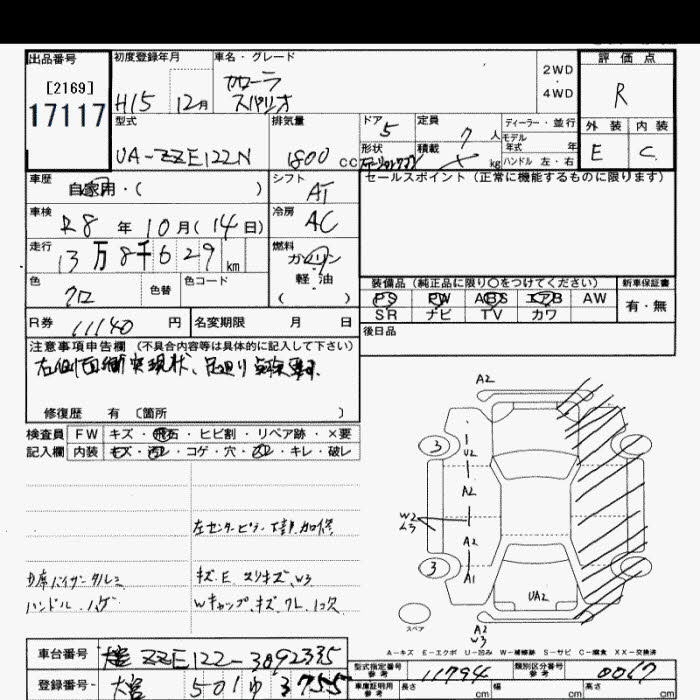 出品番号
[2169]
17117
初度登録年月
H15 12月
車名・グレード
カローラ
スパシオ
2WD
・
4WD
評価点
R
型式
UA-ZZE122N
排気量
1800 cc
ドア 5
定員 7 人
形状
積載 kg
ディーラー・並行
モデル年式 年
ハンドル 左・右
外装 内装
E C
車歴
自家用・( )
シフト
AT
セールスポイント (正常に機能するものに限ります)
車検
R8 年 10月(14日)
冷房
AC
走行
13万8千629 km
燃料
ガソリン
軽・油
( )
色
クロ
色替
色コード
装備品 (純正品に限り○をつけてください)
新車保証書
PS PW ABS エアB AW
SR ナビ TV カワ
有・無
R券 11140 円
名変期限 月 日
後日品
注意事項申告欄 (不具合内容等は具体的に記入して下さい)
右側面衝突現状、足廻り
修復歴 有 〔箇所 〕
検査員
記入欄
FW キズ・飛石・ヒビ割・リペア跡・×要
内装 キズ・汚レ・コゲ・穴・スレ・キレ・破レ
左センターピラー 下部 加修
キズ.E スリキズ.W3
ハンドル.ハゲ
Wキャップ.キズ.ワレ.1コ欠
A2
3
U2
A2
W2
A3
A2
3
A1
UA2
スペア
A2
W3
A-キズ E-エクボ U-凹み W-補修跡 S-サビ C-腐食 XX-交換済
車台番号
ZZE122-3092335
登録番号
501 ゆ 3755
型式指定番号
参考
11794
類別区分番号
参考
0067
車庫証明用
参考
長さ cm
幅 cm
高さ cm